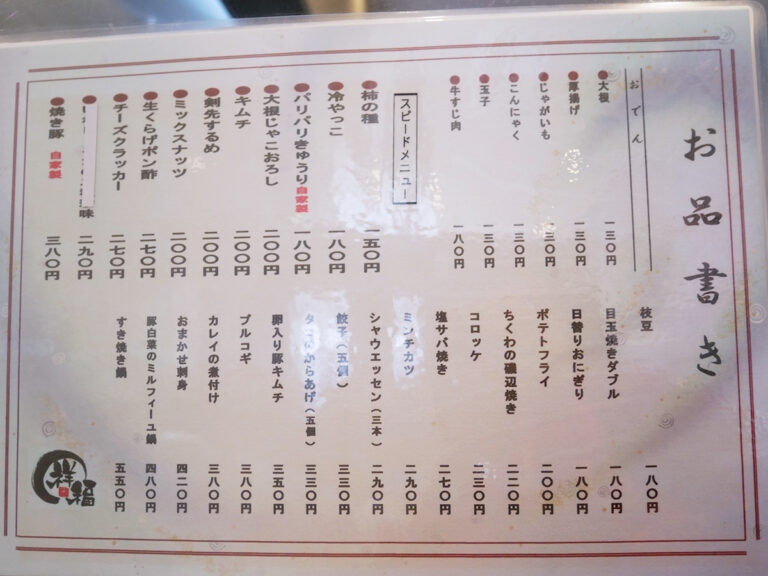 お品書き
おでん
大根 一三〇円
厚揚げ 一三〇円
じゃがいも 一三〇円
こんにゃく 一三〇円
玉子 一三〇円
牛すじ肉 一八〇円
スピードメニュー
柿の種 一五〇円
冷やっこ 一八〇円
パリパリきゅうり 自家製 一八〇円
大根じゃこおろし 二〇〇円
キムチ 二〇〇円
剣先するめ 二〇〇円
ミックスナッツ 二〇〇円
生くらげポン酢 二七〇円
チーズクラッカー 二七〇円
味 二九〇円
焼き豚 自家製 三八〇円
枝豆 一八〇円
目玉焼きダブル 一八〇円
日替りおにぎり 一八〇円
ポテトフライ 二〇〇円
ちくわの磯辺焼き 二二〇円
コロッケ 二三〇円
塩サバ焼き 二七〇円
ミンチカツ 二九〇円
シャウエッセン（三本） 二九〇円
餃子（五個） 三三〇円
からあげ（五個） 三三〇円
卵入り豚キムチ 三五〇円
プルコギ 三八〇円
カレイの煮付け 三八〇円
おまかせ刺身 四二〇円
豚白菜のミルフィーユ鍋 四八〇円
すき焼き鍋 五五〇円
祥福